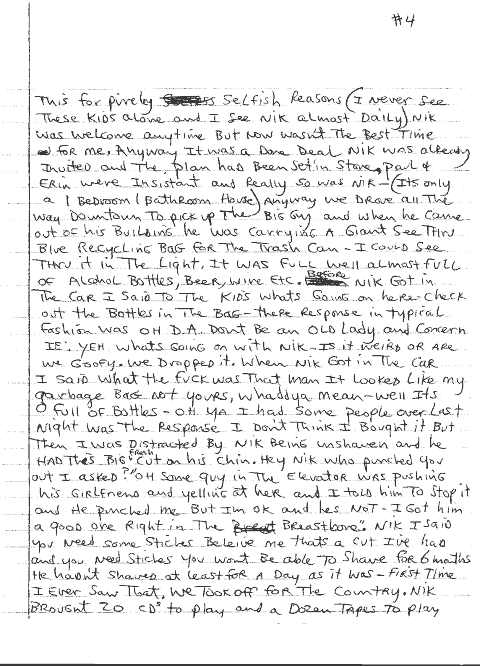 #4
This for purely Selfish Reasons (I never see
These KIDS alone and I see NIK almost Daily) NIK
was welcome anytime BUT NOW wasn't The Best Time
for me. Anyway It was a Done Deal NIK was already
Invited and The plan had Been set in Stone, Paul &
Erin were Insistant and Really so was NIK - (Its only
a 1 Bedroom 1 Bathroom House) Anyway we Drove all The
way Downtown To pick up The BIG Guy and when he came
out of his Building he was carrying a Giant See THRU
Blue Recycling BAG FOR THE Trash Can - I could See
THRU it in The Light. It was FULL well almost full
OF Alcohol Bottles, Beer, wine Etc. Before NIK Got in
The Car I Said To The KIDS whats Going on here - check
out the Bottles in The BAG - there Response in typical
Fashion was OH D.A. Dont Be an OLD Lady and Concern
IE: YEH whats GOING on with NIK - Is it weird or are
we Goofy. We Dropped it. When NIK Got in The Car
I SAID what the fuck was That man It Looked Like my
garbage BAG NOT yours, whaddya mean - well Its
full of Bottles - OH Ya I had Some people over Last
Night was The Response I Don't Think I Bought it But
Then I was Distracted By NIK Being unshaven and he
HAD This BIG Fresh Cut on his Chin. Hey NIK who punched you
out I asked? "OH Some guy in The Elevator was pushing
his Girlfriend and yelling at her and I told him To Stop it
and He punched me But Im OK and hes NOT - I Got him
a good one Right in The Breastbone". NIK I said
you Need some Stiches Beleive me thats a cut I've had
and you Need Stiches You wont Be able To Shave for 6 months
He hadn't Shaved at least for A Day as it was - First Time
I Ever Saw That. We Took off For The Country. NIK
Brought 20 CDs to play and a Dozen Tapes To play